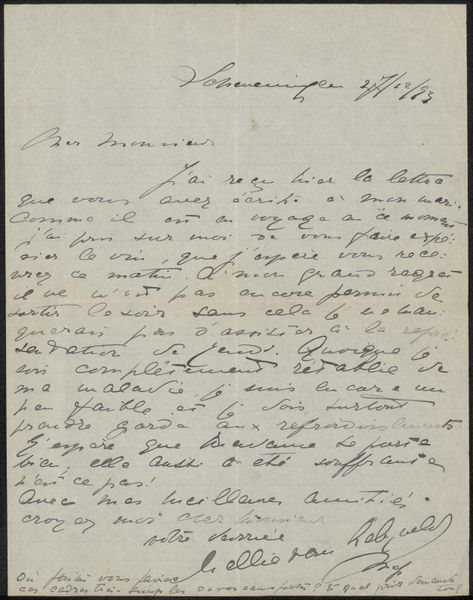 Scheveningen 27/12/93
Cher Monsieur
J'ai reçu hier la lettre
que vous avez écrite à mon mari.
Comme il est en voyage en ce moment
j'ai pris sur moi de vous faire expé-
dier le vin, que j'espère vous rece-
vrez ce matin. A mon grand regret
il ne m'est pas encore permis de
sortir le soir sans cela je ne man-
querais pas d'assister à la repré-
sentation de jeudi. Quoique je
sois complètement rétablie de
ma maladie, je suis encore un
peu faible et je dois surtout
prendre garde aux refroidissements
J'espère que Madame se porte
bien, elle aussi a été souffrante
n'est ce pas!
Avec mes meilleures amitiés.
croyez moi cher Monsieur
votre
Mellie van
Où faites vous
ces cadres très simples